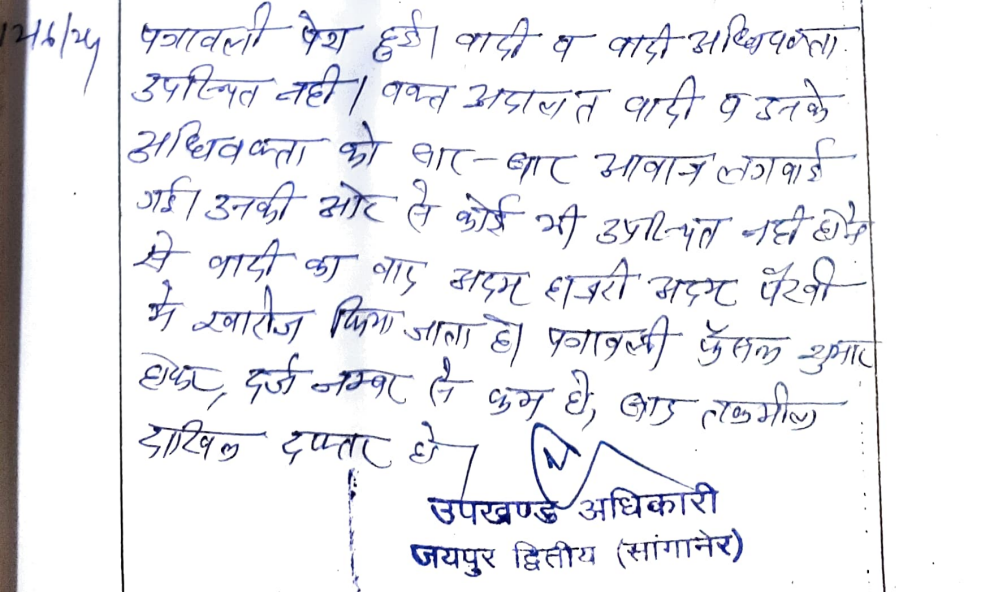 12/6/24
पत्रावली पेश हुई। वादी व वादी अधिवक्ता
उपस्थित नही। वक्त अदालत वादी व उनके
अधिवक्ता को बार-बार आवाज लगवाई
गई। उनकी ओर से कोई भी उपस्थित नही होने
से वादी का वाद अदम हाजरी अदम पैरवी
मे खारीज किया जाता है। पत्रावली फैसल शुमार
होकर, दर्ज नम्बर से कम हो, बाद तकमील
दाखिल दफ्तर हो।
उपखण्ड अधिकारी
जयपुर द्वितीय (सांगानेर)